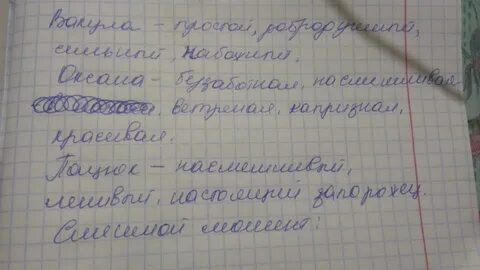 Вакула – простой, добродушный,
сильный, набожный.
Оксана – беззаботная, насмешливая
, ветреная, капризная,
красивая.
Пацюк – насмешливый,
ленивый, настоящий запорожец.
Смешной момент: